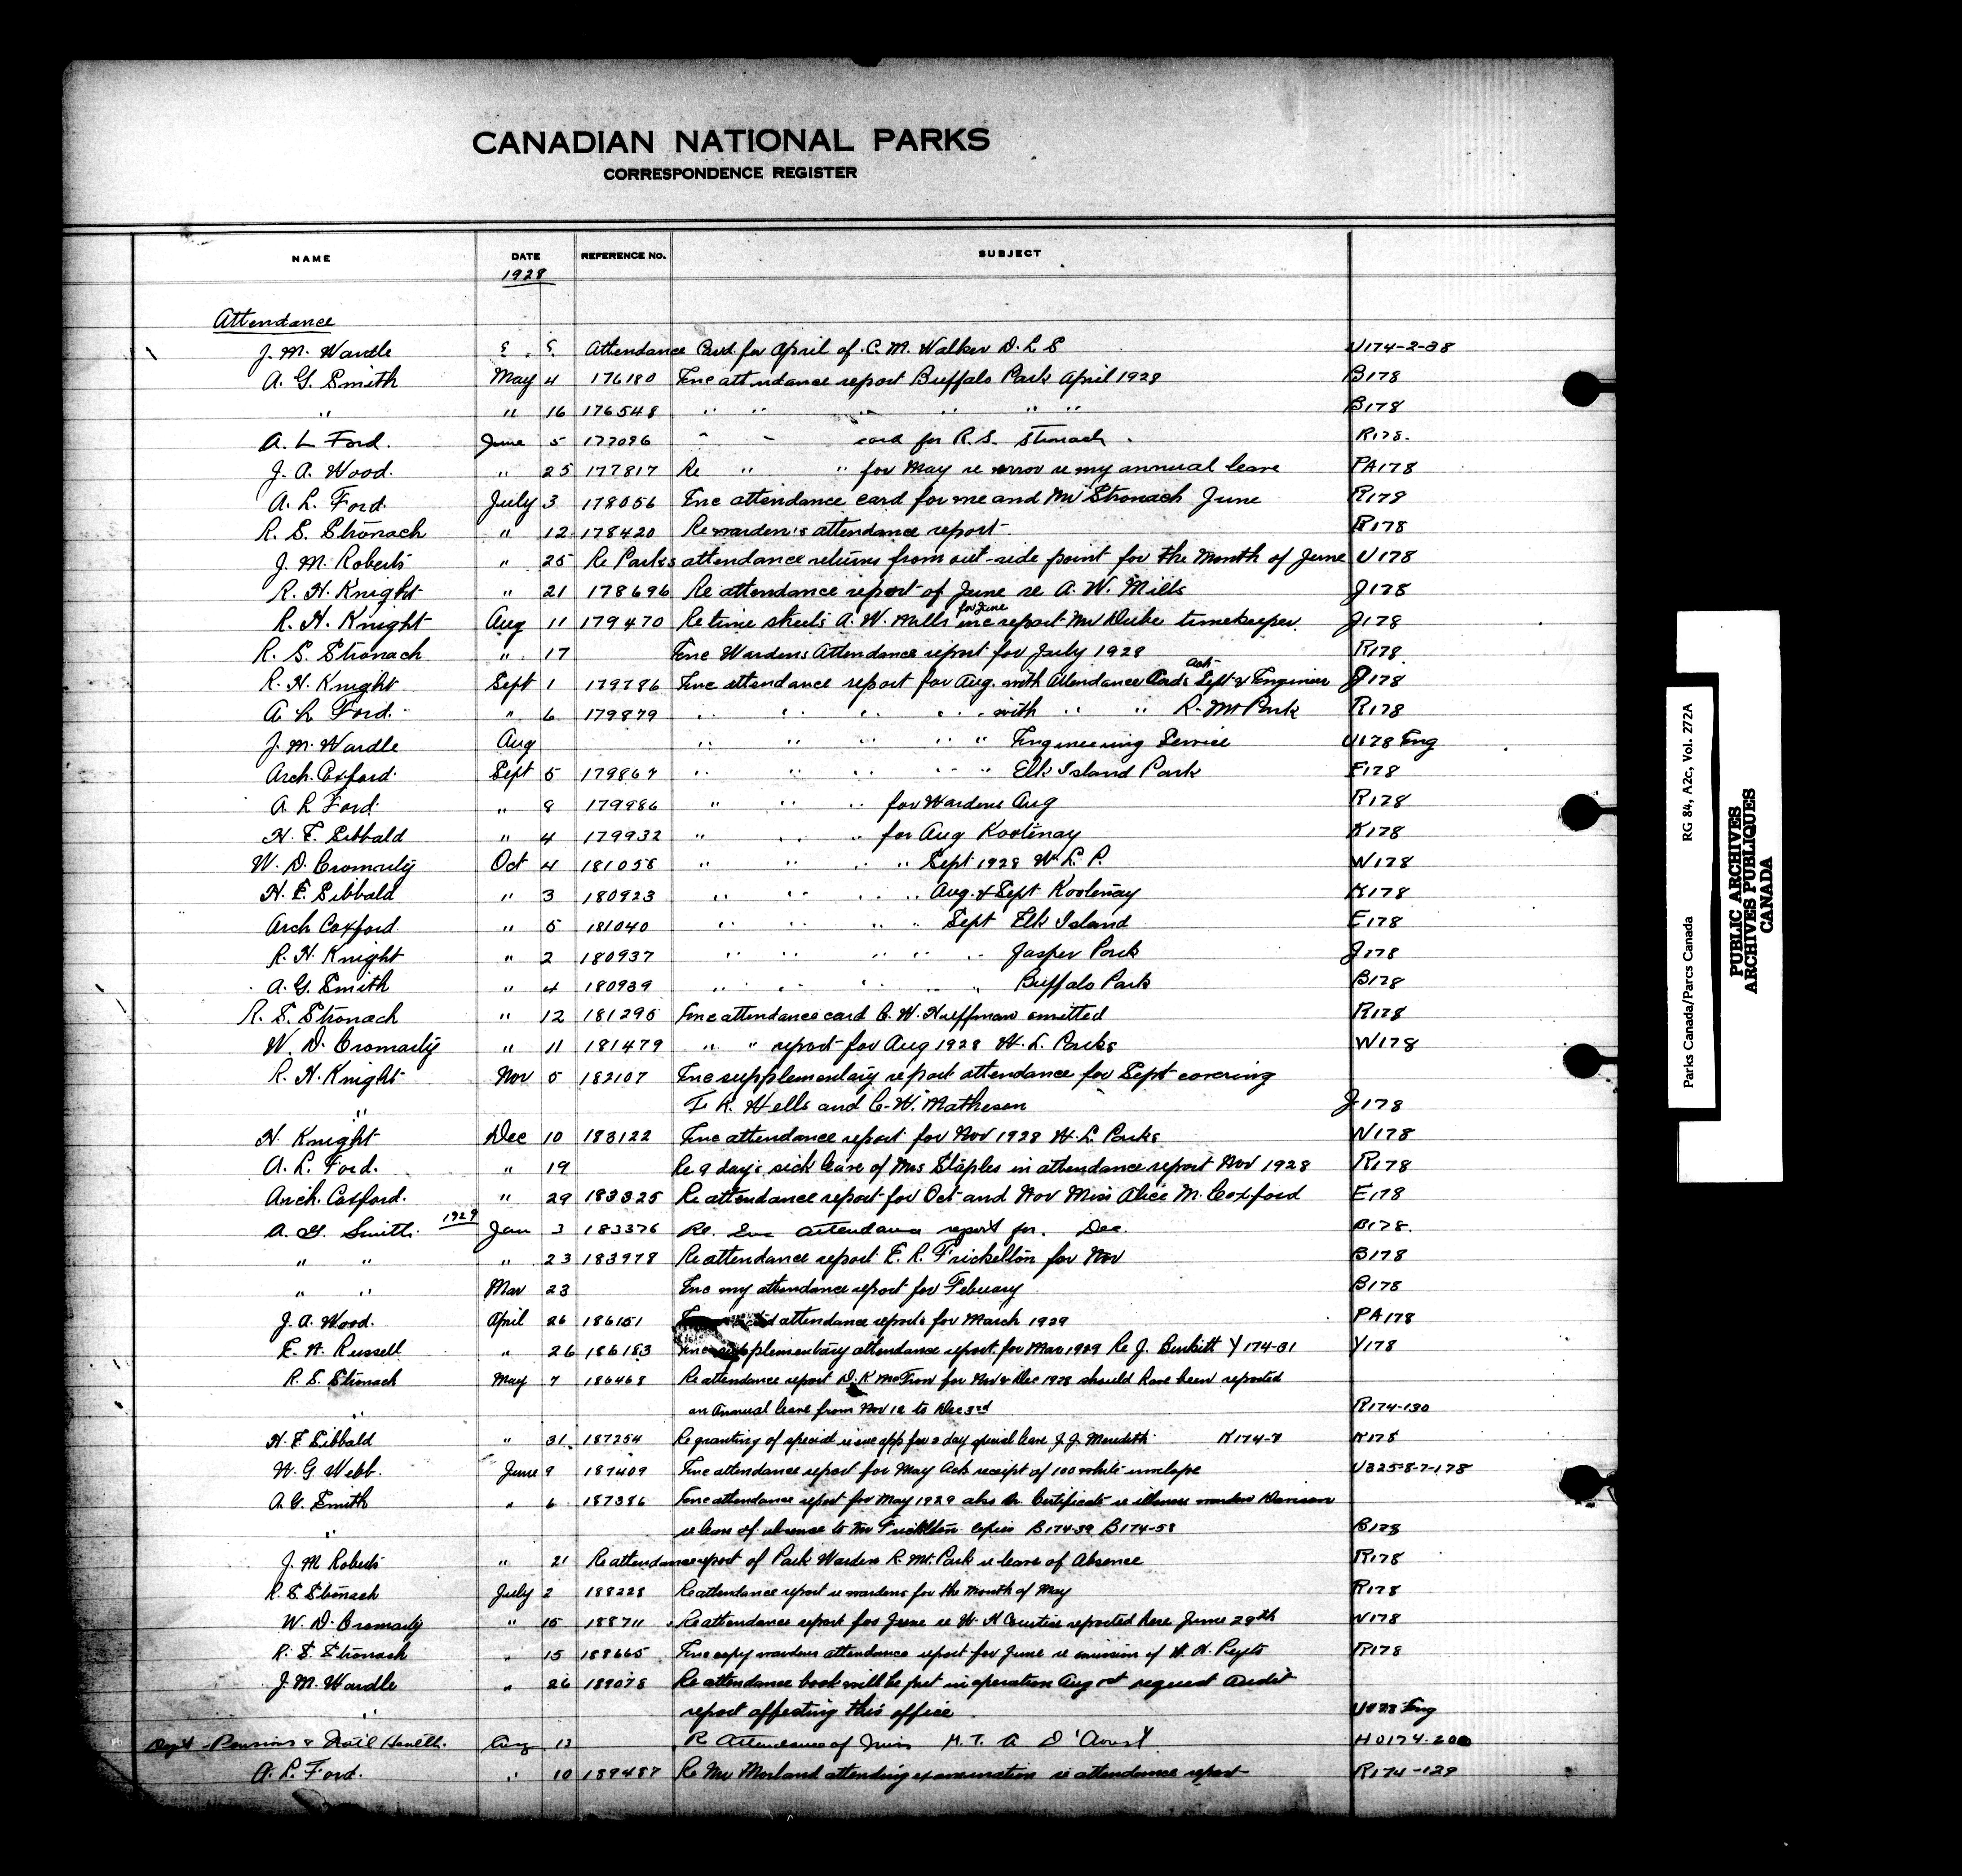 CANADIAN NATIONAL PARKS
CORRESPONDENCE REGISTER
NAME DATE REFERENCE No. SUBJECT
1928
Attendance
J. M. Wardle Attendance Card for April of C. M. Walker D. L S U174-2-38
A. G. Smith May 4 176180 Enc attendance report Buffalo Park April 1928 B178
" " 16 176548 " " " " " " B178
A. L Ford. June 5 177096 " " card for R. S. Stronach. R178.
J. A. Wood. " 25 177817 Re " " for May re error re my annual leave PA178
A. L. Ford. July 3 178056 Enc attendance card for me and Mr Stronach June R178
R. S. Stronach " 12 178420 Re warden's attendance report R178
J. M. Roberts " 25 Re Parks attendance returns from out-side point for the Month of June U178
R. H. Knight " 21 178696 Re attendance report of June re A. W. Mills J178
R. H. Knight Aug 11 179470 Re time sheets A. W. Mills for June inc report Mr Dube timekeeper. J178
R. S. Stronach " 17 Enc Wardens Attendance report for July 1928 R178
R. H. Knight Sept 1 179786 Enc attendance report for Aug. with Attendance Cards Act Supt & Engineer J178
A L Ford. " 6 179879 " " " " with " " R. Mt Park R178
J. M. Wardle Aug " " " " " Engineering Service U178 Eng
Arch. Coxford. Sept 5 179867 " " " " " Elk Island Park E178
A. L Ford. " 8 179986 " " " for Wardens Aug R178
H. E. Sibbald " 4 179932 " " " for Aug Kootenay K178
W. D. Cromarty Oct 4 181058 " " " " Sept 1928 W. L. P. W178
H. E. Sibbald " 3 180923 " " " " Aug. & Sept Kootenay K178
Arch Coxford " 5 181040 " " " " Sept Elk Island E178
R. H. Knight " 2 180937 " " " " " Jasper Park J178
A. G. Smith " 4 180939 " " " " " Buffalo Park B178
R. S. Stronach " 12 181295 Enc attendance card C. W. Huffman omitted R178
W. D. Cromarty " 11 181479 " " report for Aug 1928 W. L. Parks W178
R. H. Knight Nov 5 182107 Enc supplementary report attendance for Sept covering
" F. K. Wells and C. W. Matheson J178
H. Knight Dec 10 183122 Enc attendance report for Nov 1928 W. L. Parks W178
A. L. Ford. " 19 Re 9 day's sick leave of Mrs Staples in attendance report Nov 1928 R178
Arch. Coxford. " 29 183325 Re attendance report for Oct and Nov Miss Alice M. Coxford E178
A. G. Smith. 1929 Jan 3 183376 Re. Enc attendance report for. Dec. B178.
" " " 23 183978 Re attendance report E. R. Frickelton for Nov B178
" " Mar 23 Enc my attendance report for Febuary B178
J. A. Wood. April 26 186151 attendance reports for March 1929 PA178
E. N. Russell " 26 186183 Enc supplementary attendance report for Mar 1929 Re J. Burkitt Y174-31 Y178
R. S. Stronach May 7 186468 Re attendance report D. K for Nov & Dec 1928 should have been reported
" on Annual leave from Nov 12 to Dec 3rd R174-130
H. E Sibbald " 31 187254 Re granting of special leave app for day special leave J. J. Meredith K174-7 K178
W. G. Webb. June 9 187409 Enc attendance report for May Ack receipt of 100 white envelope U325-8-7-178
A. G. Smith " 6 187386 Enc attendance report for May 1929 also Dr. Certificate re illness warden Davison
" re leave of absence to Mr Frickelton. Copies B174-39 B174-58 B178
J. M Roberts " 21 Re attendance report of Park Warden R. Mt. Park re leave of Absence R178
R. S. Stronach July 2 188228 Re attendance report re wardens for the Month of May R178
W. D. Cromarty " 15 188711 Re attendance report for June re W. H reported here June 29th W178
R. S. Stronach " 15 188665 Enc copy wardens attendance report for June re omission of W. H. Peyto R178
J. M. Wardle " 26 189078 Re attendance book will be put in operation Aug 1st request Audit
" report affecting this office U178 Eng
Dept Pensions & Nat'l Health. Aug 13 Re Attendance of Miss M. T. A D'Aoust HO174-200
A. L. Ford. " 10 189487 Re Mr Morland attending examination re attendance report R174-129
Parks Canada/Parcs Canada RG 84, A2c, Vol. 272A
PUBLIC ARCHIVES
ARCHIVES PUBLIQUES
CANADA